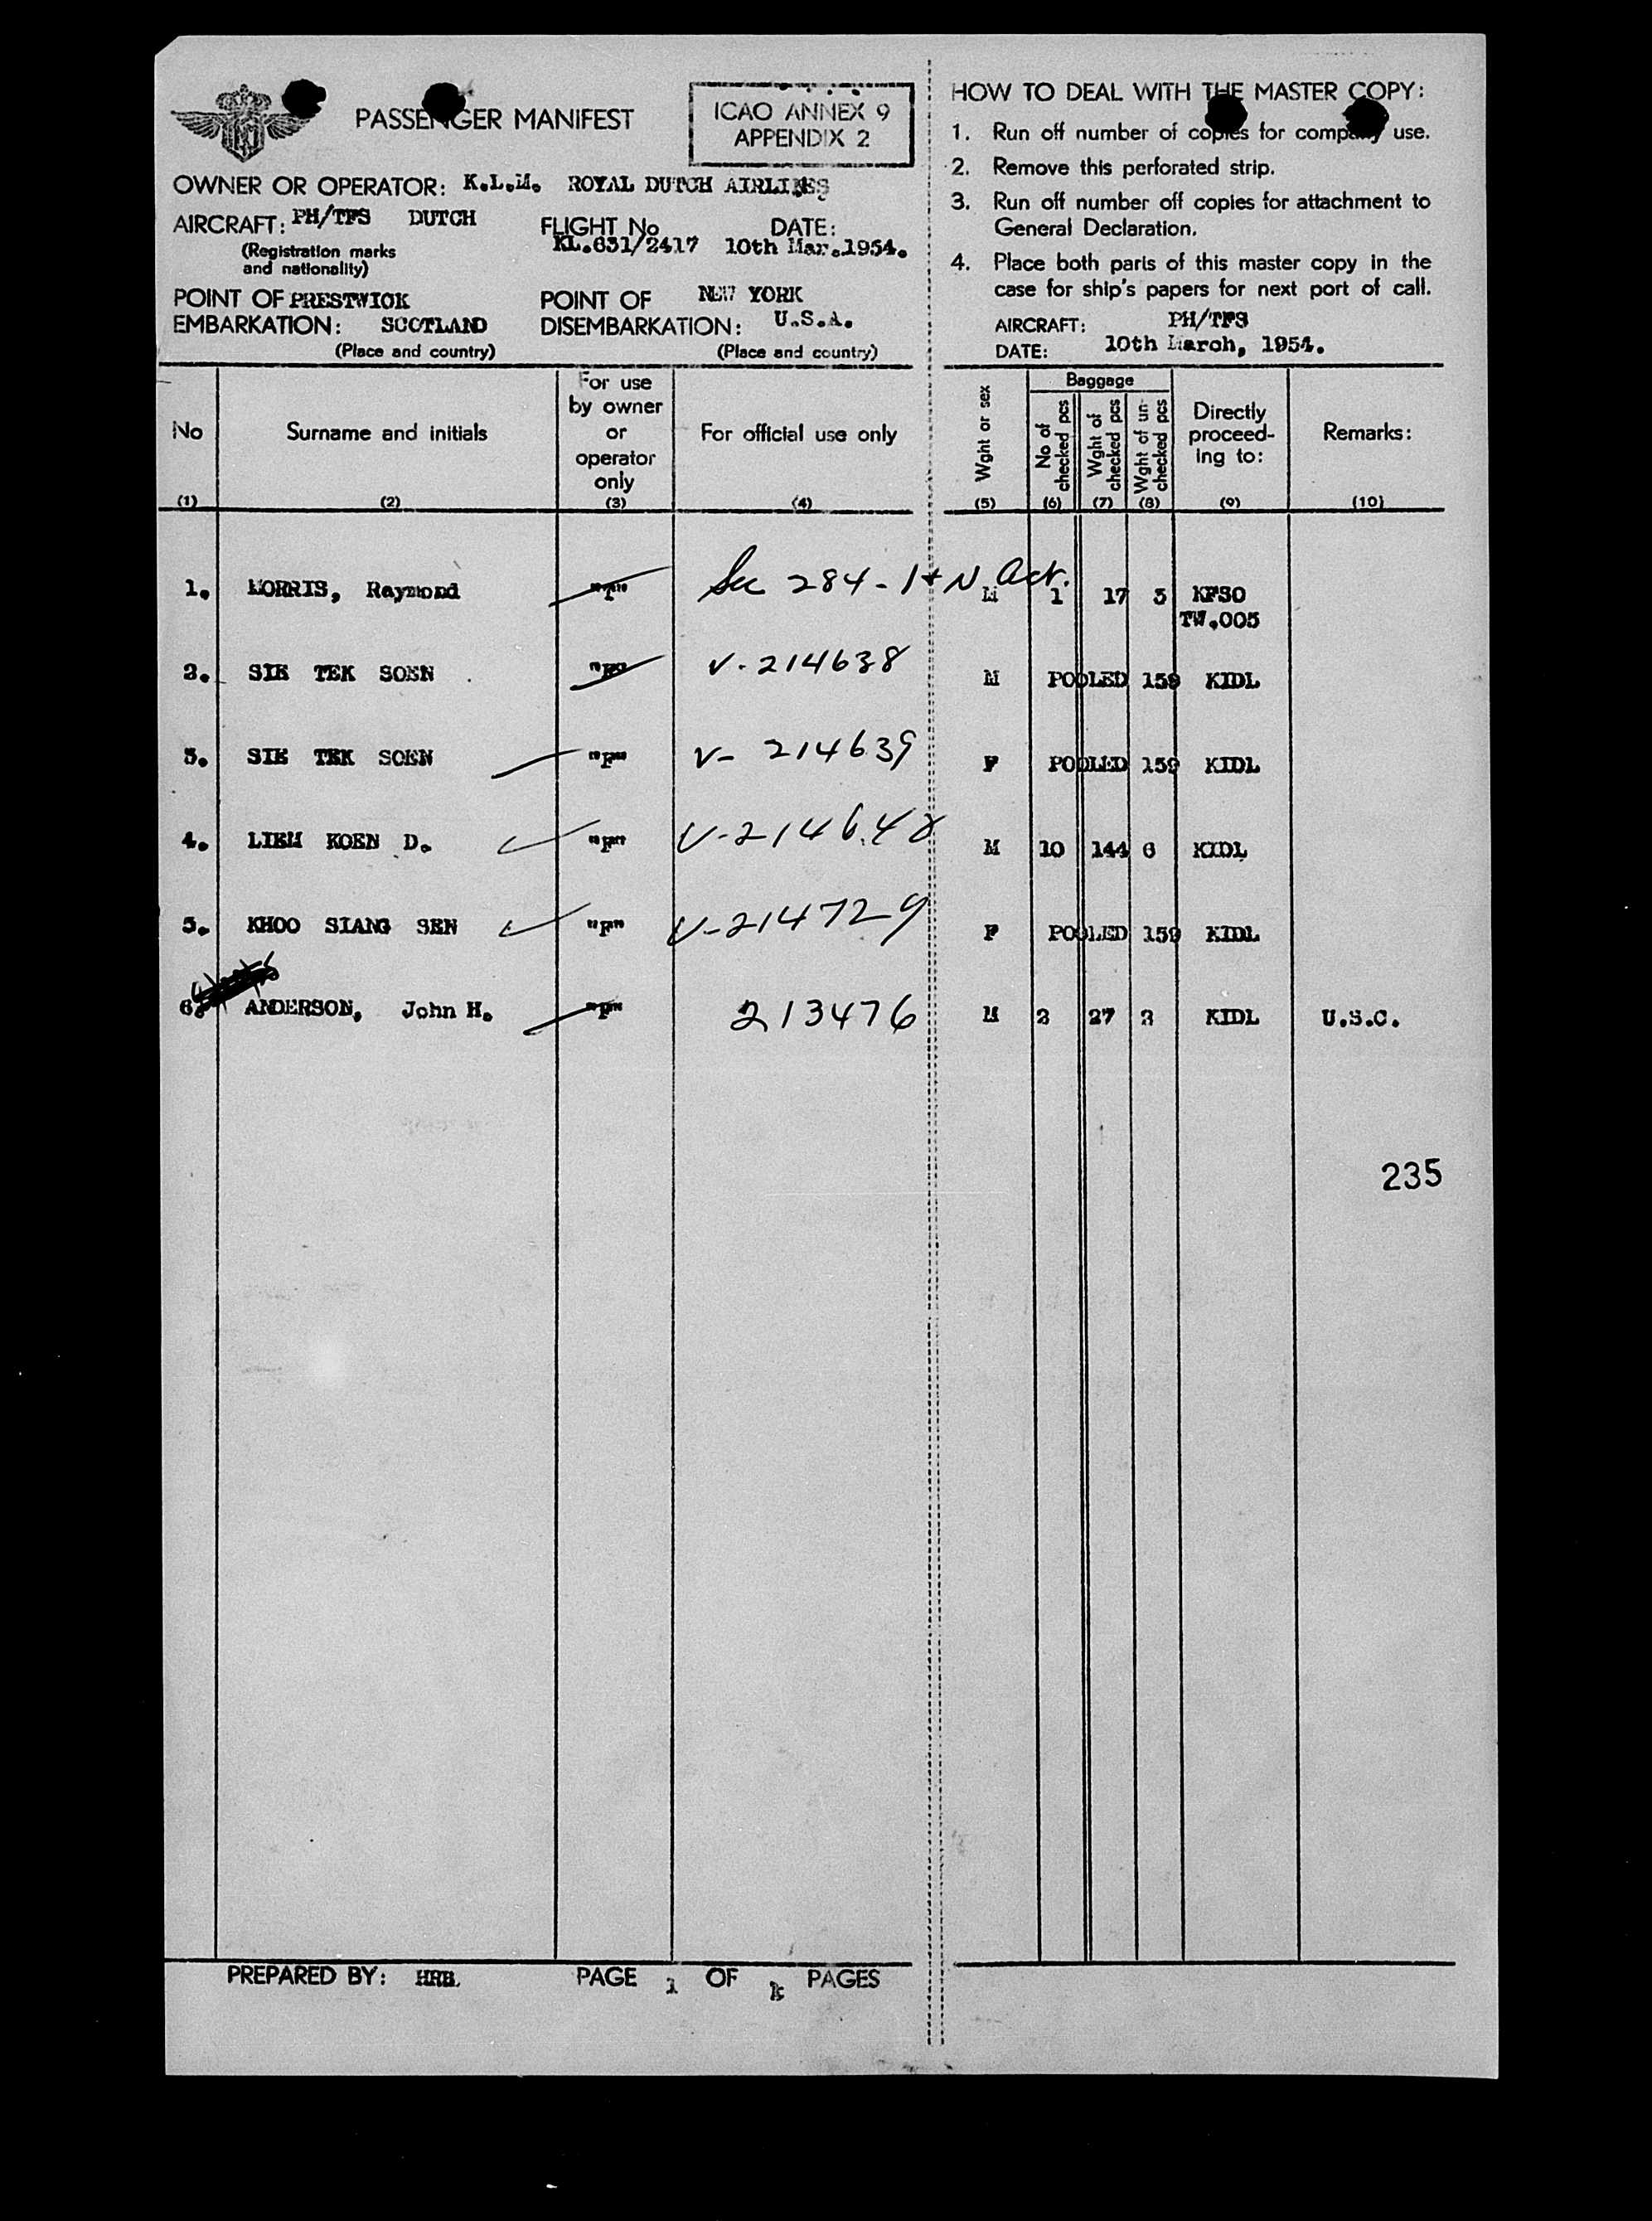 PASSENGER MANIFEST
ICAO ANNEX 9
APPENDIX 2
OWNER OR OPERATOR: K.L.M. ROYAL DUTCH AIRLINES
AIRCRAFT: PH/TFS DUTCH
(Registration marks
and nationality)
FLIGHT No DATE:
KL.631/2417 10th Mar.1954.
POINT OF PRESTWICK
EMBARKATION: SCOTLAND
(Place and country)
POINT OF NEW YORK
DISEMBARKATION: U.S.A.
(Place and country)
HOW TO DEAL WITH THE MASTER COPY:
1. Run off number of copies for company use.
2. Remove this perforated strip.
3. Run off number off copies for attachment to
General Declaration.
4. Place both parts of this master copy in the
case for ship's papers for next port of call.
AIRCRAFT: PH/TFS
DATE: 10th March, 1954.
No
(1)
Surname and initials
(2)
For use
by owner
or
operator
only
(3)
For official use only
(4)
Wght or sex
(5)
Baggage
No of
checked pcs
(6)
Wght of
checked pcs
(7)
Wght of un-
checked pcs
(8)
Directly
proceed-
ing to:
(9)
Remarks:
(10)
1. MORRIS, Raymond "T" Sec 284 - I + N Act. M 1 17 3 KFSO
TW.005
2. SIE TEK SOEN "F" V-214638 M POOLED 159 KIDL
3. SIE TEK SOEN "F" V- 214639 F POOLED 159 KIDL
4. LIEM KOEN D. "F" M 10 144 6 KIDL
5. KHOO SIANG SEN "F" V-214729 F POOLED 159 KIDL
6. ANDERSON, John H. "F" 213476 M 2 27 2 KIDL U.S.C.
235
PREPARED BY: HRB. PAGE 1 OF PAGES